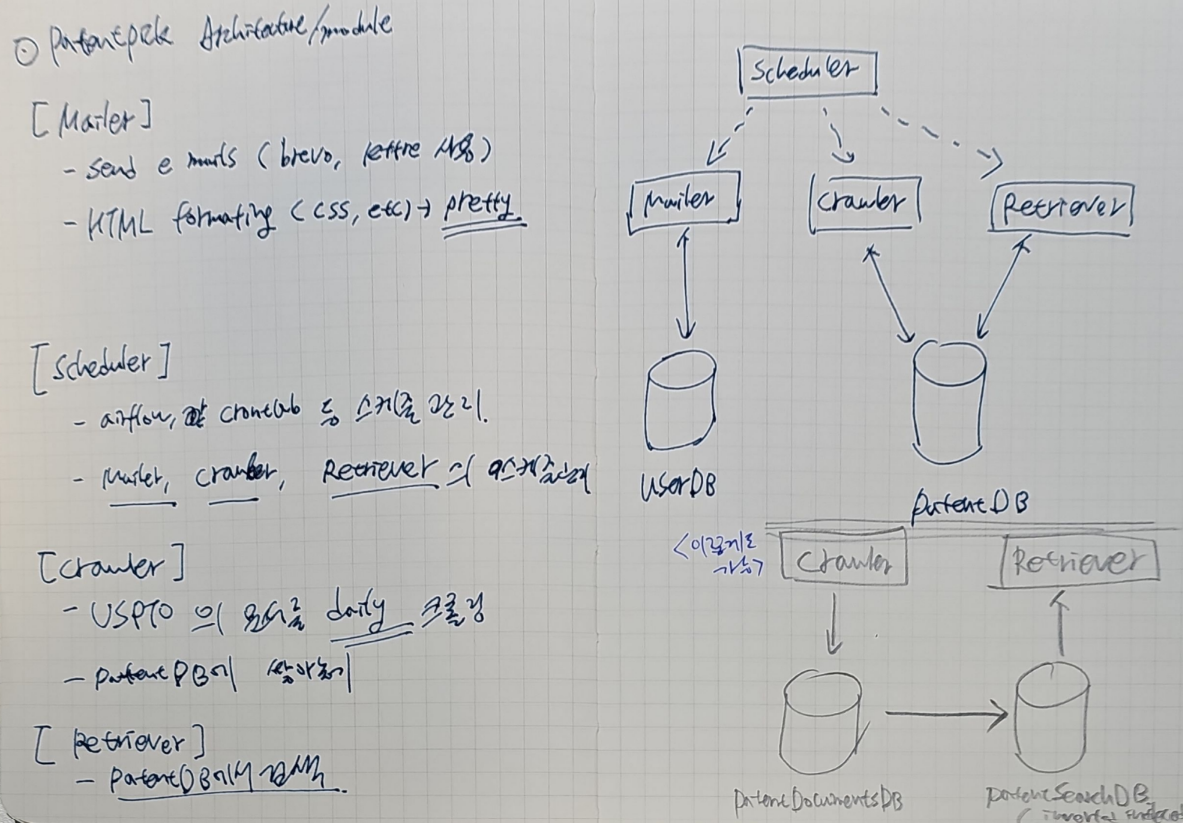 ⊙ Patentpick Architecture/module
[Mailer]
- send e mails (brevo, lettre 사용)
- HTML formating (css, etc) → pretty
[Scheduler]
- airflow, crontab 등 스케줄 관리.
- Mailer, Crawler, Retriever 의
[Crawler]
- USPTO 의 문서를 daily 크롤링
- PatentDB에 쌓아놓기
[Retriever]
- PatentDB에서 검색.
Scheduler
Mailer
Crawler
Retriever
UserDB
PatentDB
<이렇게도
가능>
Crawler
Retriever
PatentDocumentsDB
PatentSearchDB